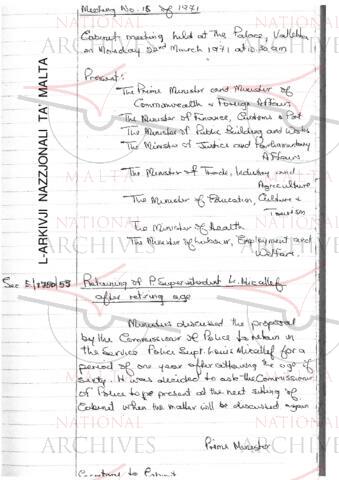 Meeting No. 18 of 1971
Cabinet meeting held at the Palace, Valletta
on Monday 22nd March 1971 at 10.30am
Present:
The Prime Minister and Minister of
Commonwealth & Foreign Affairs
The Minister of Finance, Customs & Port
The Minister of Public Building and Works
The Minister of Justice and Parliamentary
Affairs
The Minister of Trade, Industry and
Agriculture
The Minister of Education, Culture &
Tourism
The Minister of Health
The Minister of Labour, Employment and
Welfare.
See
Retaining of P. Superintendent L. Micallef
after retiring age
Ministers discussed the proposal
by the Commissioner of Police to retain in
the Service Police Supt. Louis Micallef for a
period of one year after attaining the age of
sixty. It was decided to ask the Commissioner
of Police to be present at the next sitting of
Cabinet when the matter will be discussed again
Prime Minister
L-ARKIVJI NAZZJONALI TA' MALTA
NATIONAL
ARCHIVES
MALTA